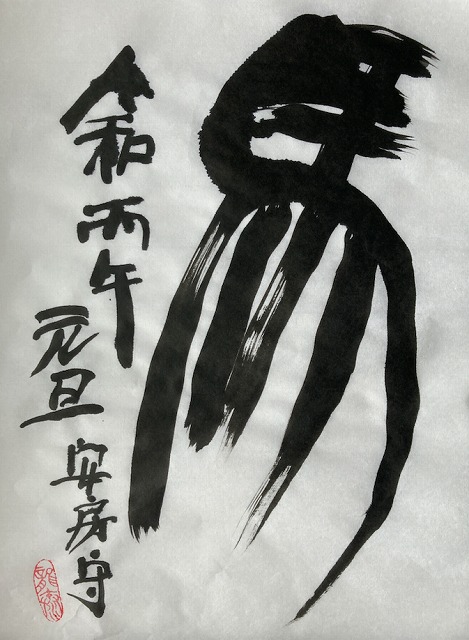 馬
令和丙午
元旦
安房守